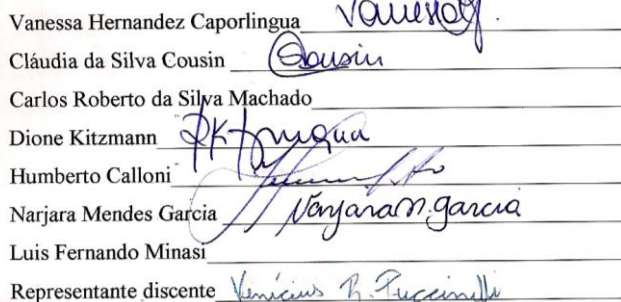 Vanessa Hernandez Caporlingua Vanessa
Cláudia da Silva Cousin Cousin
Carlos Roberto da Silva Machado
Dione Kitzmann
Humberto Calloni
Narjara Mendes Garcia Narjara M. Garcia
Luis Fernando Minasi
Representante discente Venícius R. Puccinelli